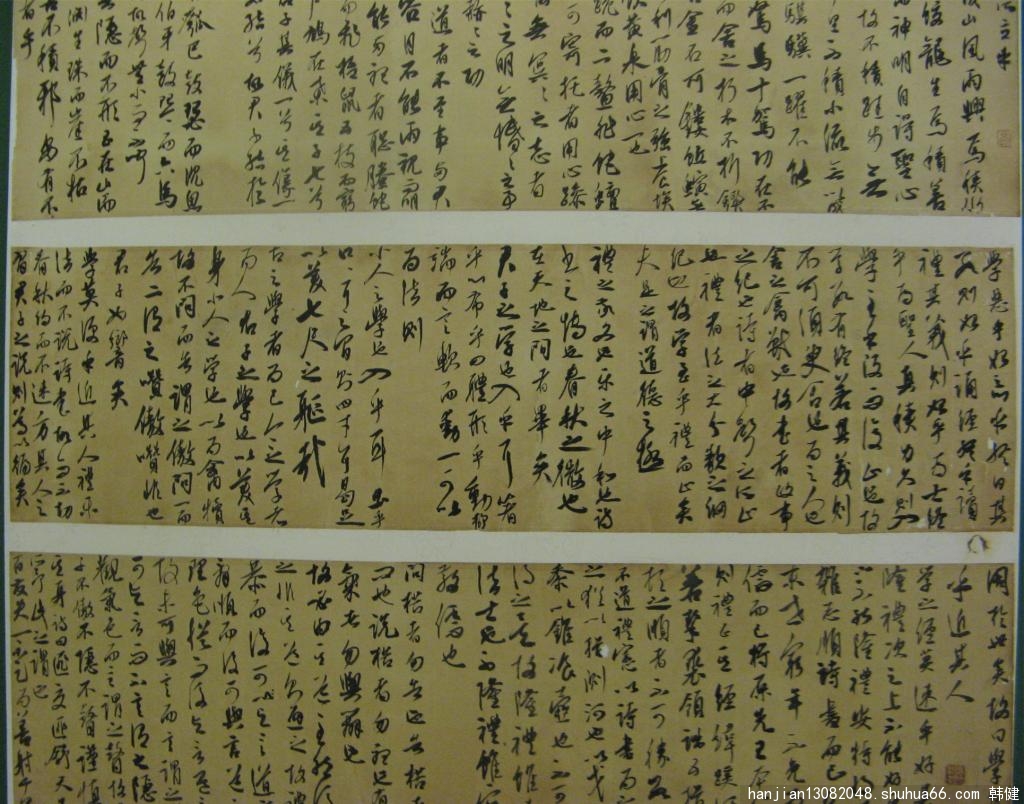 成山風雨興焉積水
蛟龍生焉積善
而神明自得聖心
故不積跬步無
里不積小流無以成
騏驥一躍不能
駑馬十駕功在不
而舍之朽木不折鍥
金石可鏤蚯螾無
利筋骨之強食埃
飲黃泉用心一
跪而二螯非蛇鱓
可寄托者用心躁
無冥冥之志者
之明無惛惛之事
赫赫之功
道者不至事兩君
容目不能兩視而
能兩聽者聰螣蛇
而飛梧鼠五技而窮
鳩在桑其子七兮
君子其儀一兮其儀一
如結兮故君子結於
瓠巴鼓瑟而沈魚
伯牙鼓琴而六馬
故聲無小而
隱而不形玉在山而
淵生珠而崖不枯
不積邪安有不
者乎
學惡乎始惡乎終曰其
數則始乎誦經終乎讀
禮其義則始乎為士終
乎為聖人真積力久則入
學至乎沒而後止也故
學數有終若其義則
不可須臾舍也為之人也
舍之禽獸也故書者政事
之紀也詩者中聲之所止
也禮者法之大分類之綱
紀也故學至乎禮而止矣
夫是之謂道德之極
禮之敬文也樂之中和也詩
書之博也春秋之微也
在天地之間者畢矣
君子之學也入乎耳著
乎心布乎四體形乎動靜
端而言蝡而動一可以
為法則
小人之學也入乎耳出乎
口口耳之間則四寸耳曷足
以美七尺之軀哉
古之學者為己今之學者
為人君子之學也以美其
身小人之學也以為禽犢
故不問而告謂之傲問一而
告二謂之囋傲囋非也
君子如響矣
學莫便乎近其人禮樂
法而不說詩書故而不切
春秋約而不速方其人之
習君子之說則尊以徧矣
周於世矣故曰學
乎近其人
學之經莫速乎好
隆禮次之上不能好
下不能隆禮安特將
雜志順詩書而已
末世窮年不免
儒而已將原先王
則禮正其經緯蹊
若挈裘領詘五指
頓之順者不可勝數
不道禮憲以詩書為
之猶以指測河也以戈
黍以錐飡壺也不可
得之矣故隆禮雖
法士也不隆禮雖
散儒也
問楛者勿告也告楛
勿問也說楛者勿聽也
氣者勿與辯也
故必由其道至然後
之非其道則避之故禮
恭而後可與言道
辭順而後可與言道之
理色從而後可與言道
故未可與言而言謂之
可與言而不言謂之隱
觀氣色而言謂之瞽故
子不傲不隱不瞽謹慎
其身詩曰匪交匪舒天
所予此之謂也
百發失一不足為善射千
hanjian13082048.shuhua66.com 韩健